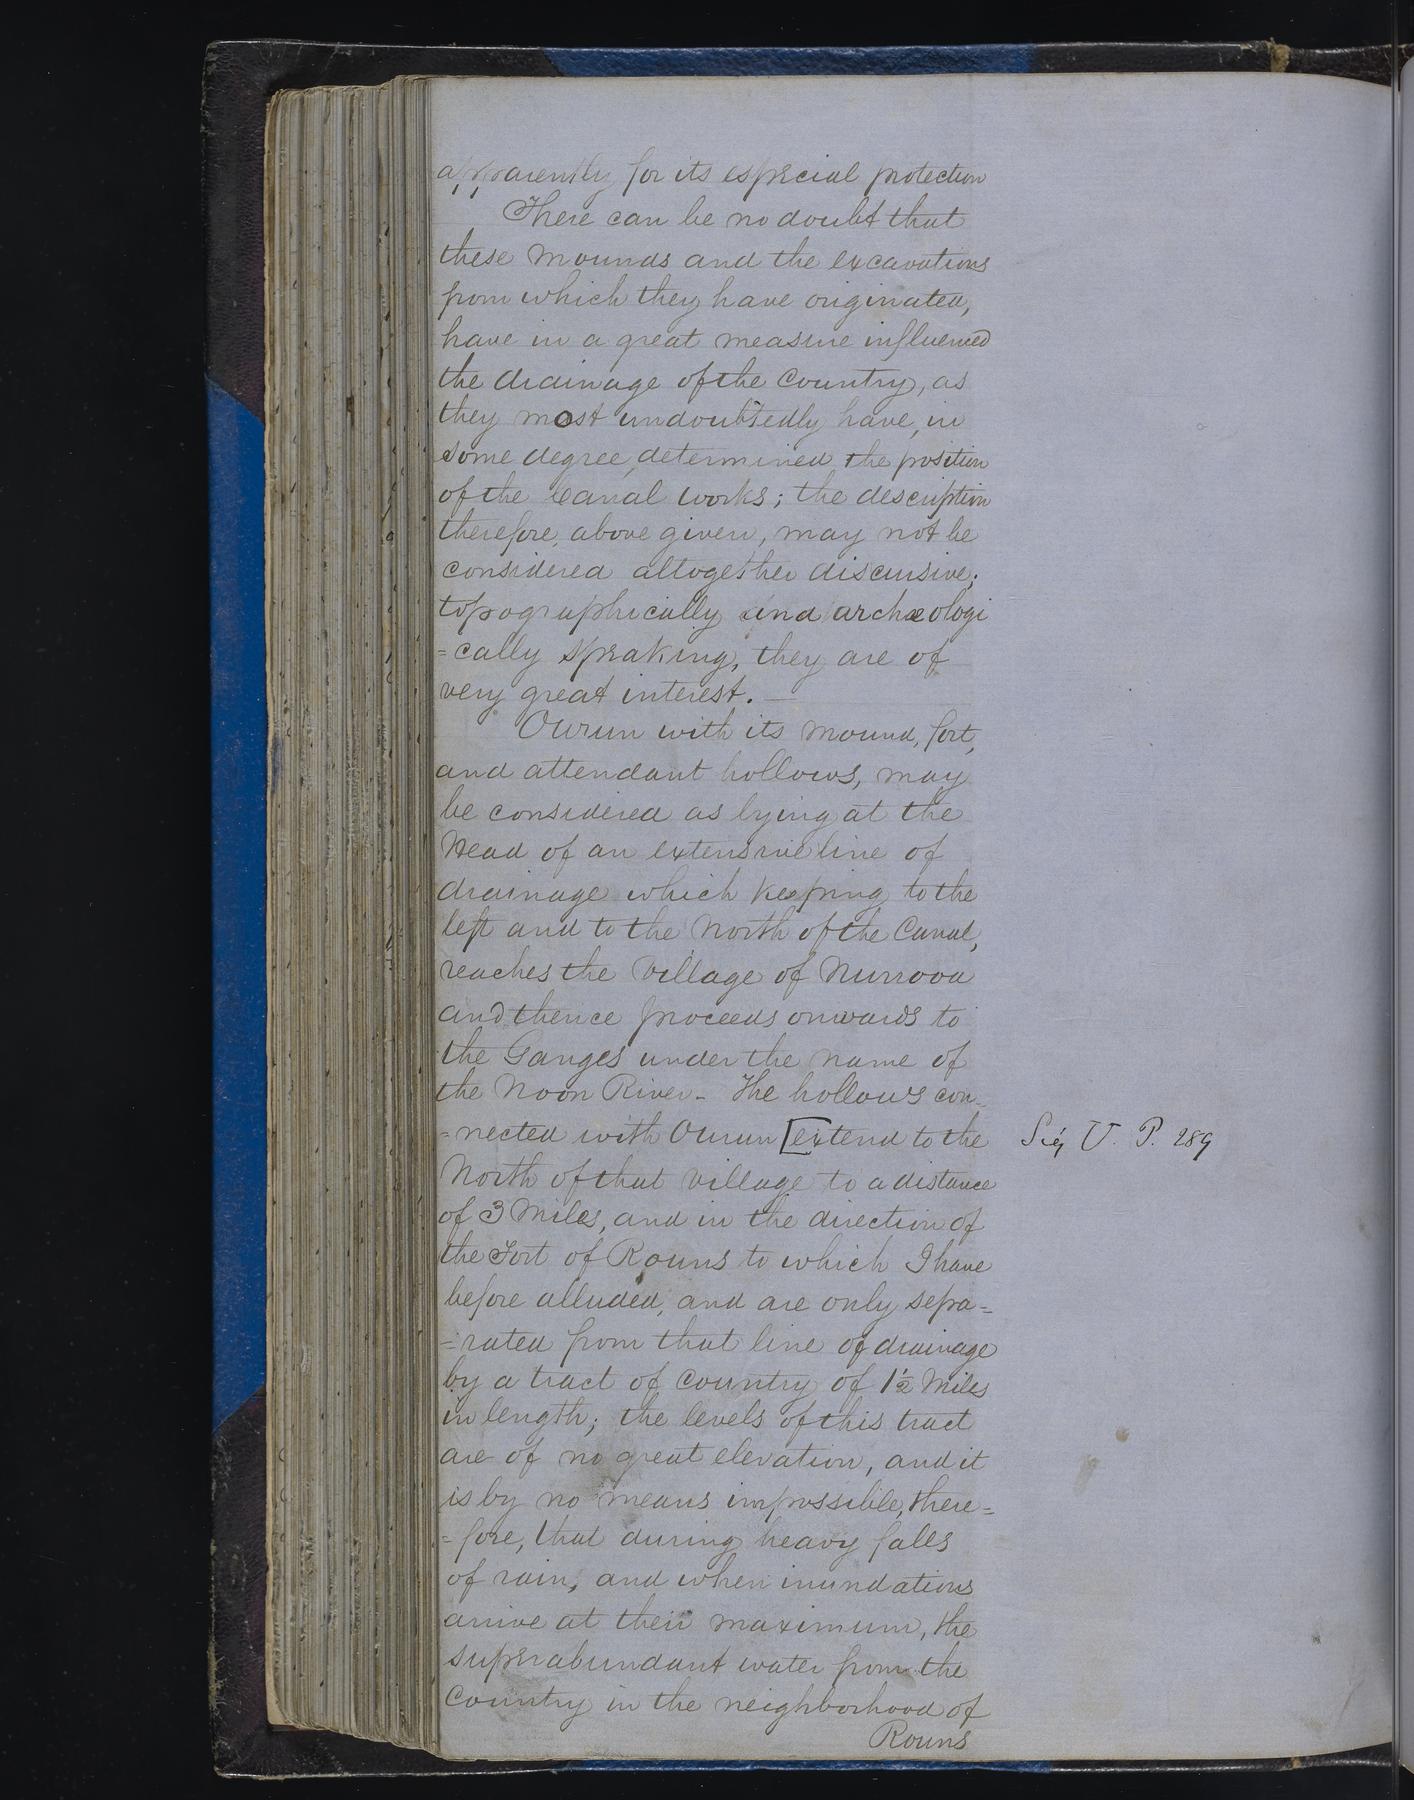 apparently for its especial protection
There can be no doubt that
these mounds and the excavations
from which they have originated,
have in a great measure influenced
the drainage of the Country, as
they most undoubtedly have, in
some degree, determined the position
of the Canal works; the description
therefore, above given, may not be
considered altogether discursive;
topographically and archæologi
=cally speaking, they are of
very great interest. —
Ourun with its mound, fort,
and attendant hollows, may
be considered as lying at the
Head of an extensive line of
drainage which keeping to the
left and to the North of the Canal,
reaches the Village of Nurrova
and thence proceeds onwards to
the Ganges under the name of
the Noon River - The hollows con-
=nected with Ourun [extend to the
Sig V. P. 289
North of that Village to a distance
of 3 Miles, and in the direction of
the Fort of Rouns to which I have
before alluded, and are only sepa=
=rated from that line of drainage
by a tract of Country of 1½ Miles
in length; the levels of this tract
are of no great elevation, and it
is by no means impossible, there=
=fore, that during heavy falls
of rain, and when inundations
arrive at their maximum, the
superabundant water from the
Country in the neighborhood of
Rouns